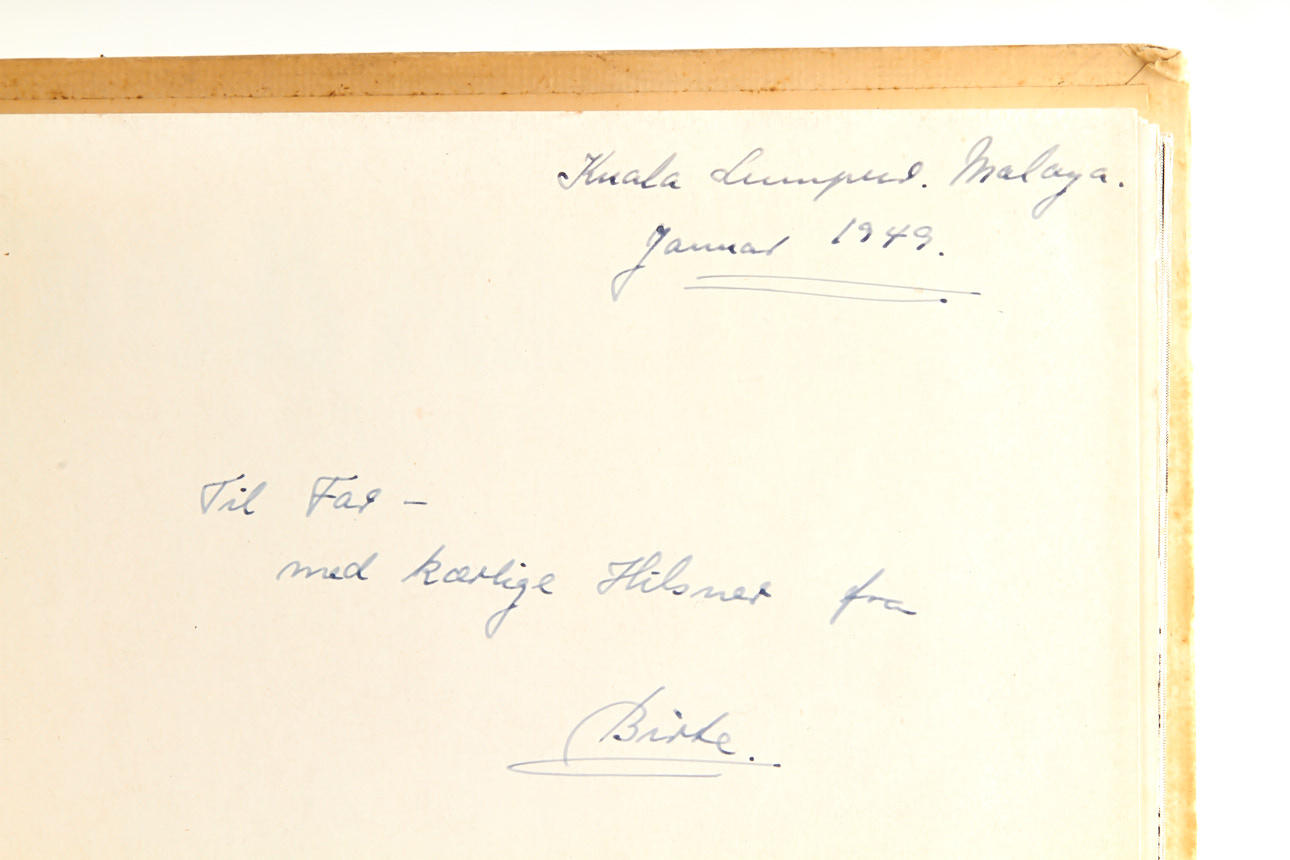 Kuala Lumpur. Malaya.
Januar 1949.
Til Far –
med kærlige Hilsner fra
Birte.